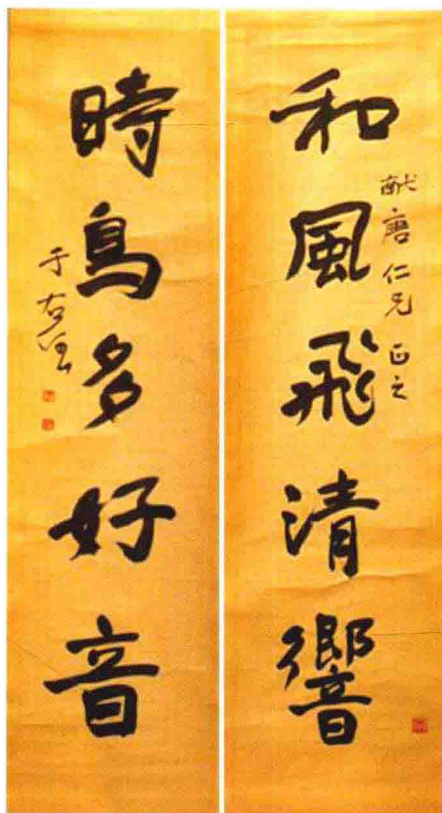 和風飛清響
献唐仁兄正之
時鳥多好音
于右任